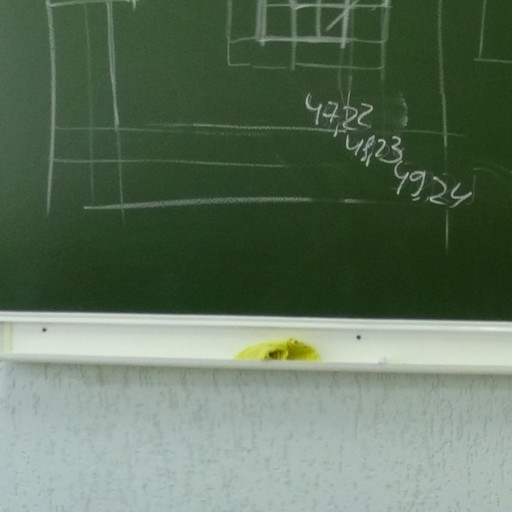 47,22
48,23
49,24